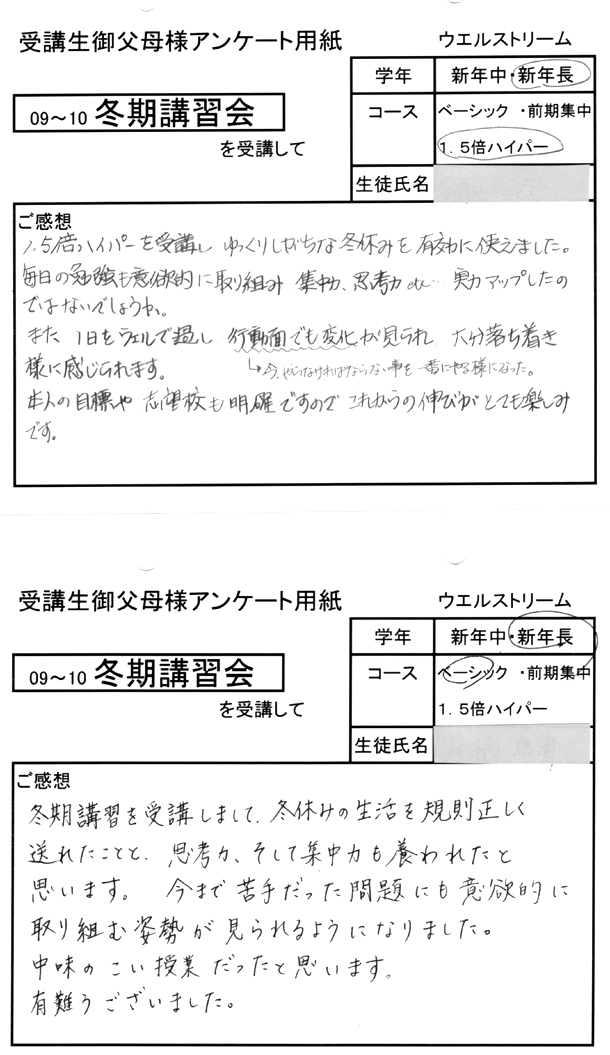 受講生御父母様アンケート用紙
ウエルストリーム
学年
新年中・新年長
09～10 冬期講習会
コース
ベーシック ・前期集中
を受講して
1．5倍ハイパー
生徒氏名
ご感想
1.5倍ハイパーを受講し ゆっくりしがちな冬休みを有効に使えました。
毎日の勉強も意欲的に取り組み 集中力、思考力 etc… 実力アップしたの
ではないでしょうか。
また 1日をウェルで過し 行動面でも変化が見られ 大分落ち着き
様に感じられます。
↳今、やらなければならない事を一番にやる様になった。
本人の目標や 志望校も明確ですので これからの伸びがとても楽しみ
です。
受講生御父母様アンケート用紙
ウエルストリーム
学年
新年中・新年長
09～10 冬期講習会
コース
ベーシック ・前期集中
を受講して
1．5倍ハイパー
生徒氏名
ご感想
冬期講習を受講しまして、冬休みの生活を規則正しく
送れたことと、思考力、そして集中力も養われたと
思います。 今まで苦手だった問題にも意欲的に
取り組む姿勢が見られるようになりました。
中味のこい授業だったと思います。
有難うございました。